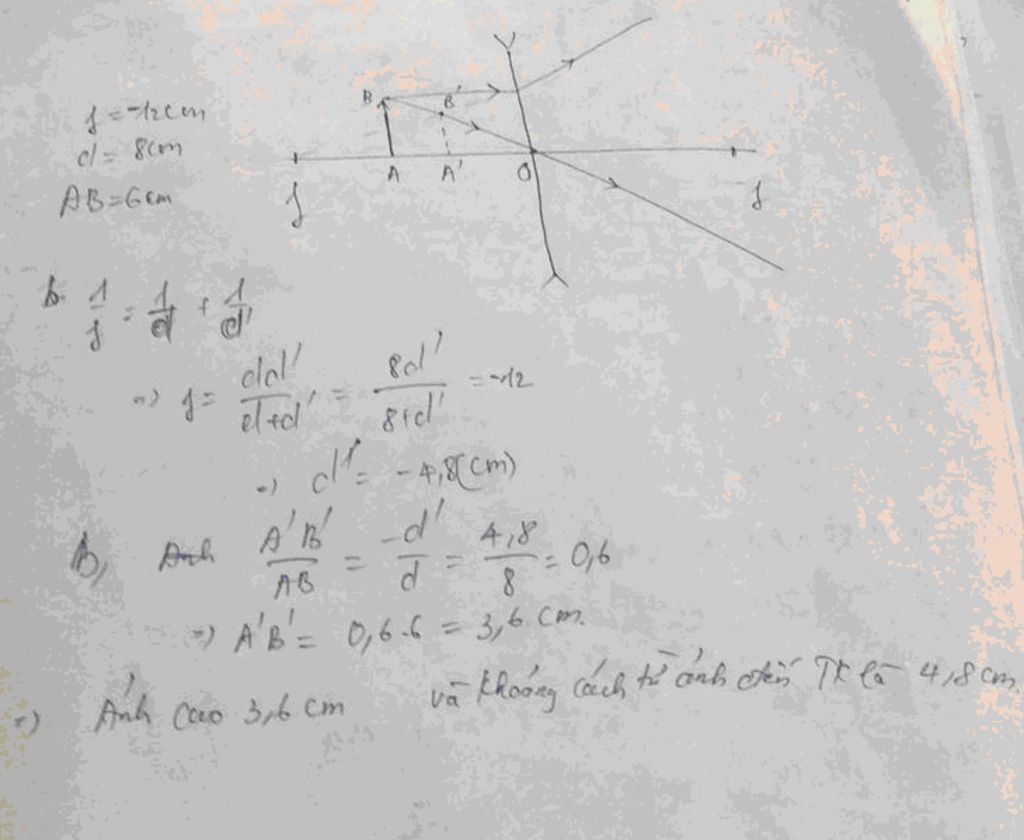 f = -12cm
d = 8cm
AB = 6cm
B B'
A A' O
f f
b. 1/f = 1/d + 1/d'
=) f = dd'/d+d' = 8d'/8+d' = -12
=) d' = -4,8(cm)
b, Ảnh A'B'/AB = -d'/d = 4,8/8 = 0,6
=) A'B' = 0,6.6 = 3,6 cm.
=) Ảnh cao 3,6 cm và khoảng cách từ ảnh đến TK là 4,8 cm.